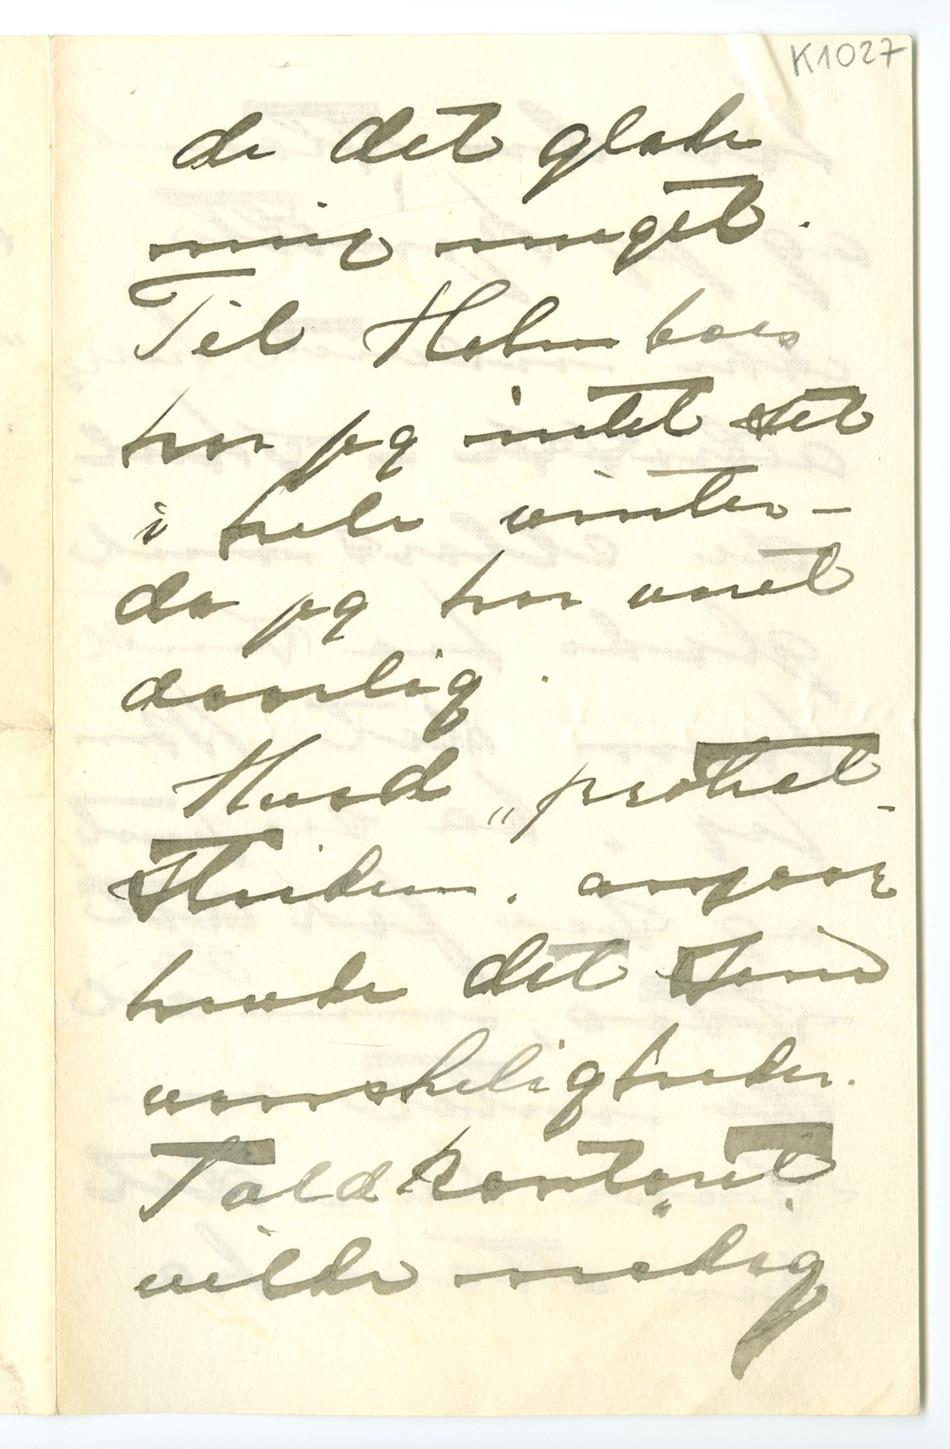 K1027
da det glæder
mig meget.
Til Holmboes
har jeg intet set
i hele vinter –
da jeg har været
daarlig.
Hvad „portræt-
striden" angaar
havde det sine
vanskeligheder.
Toldkontoret
vilde nødig